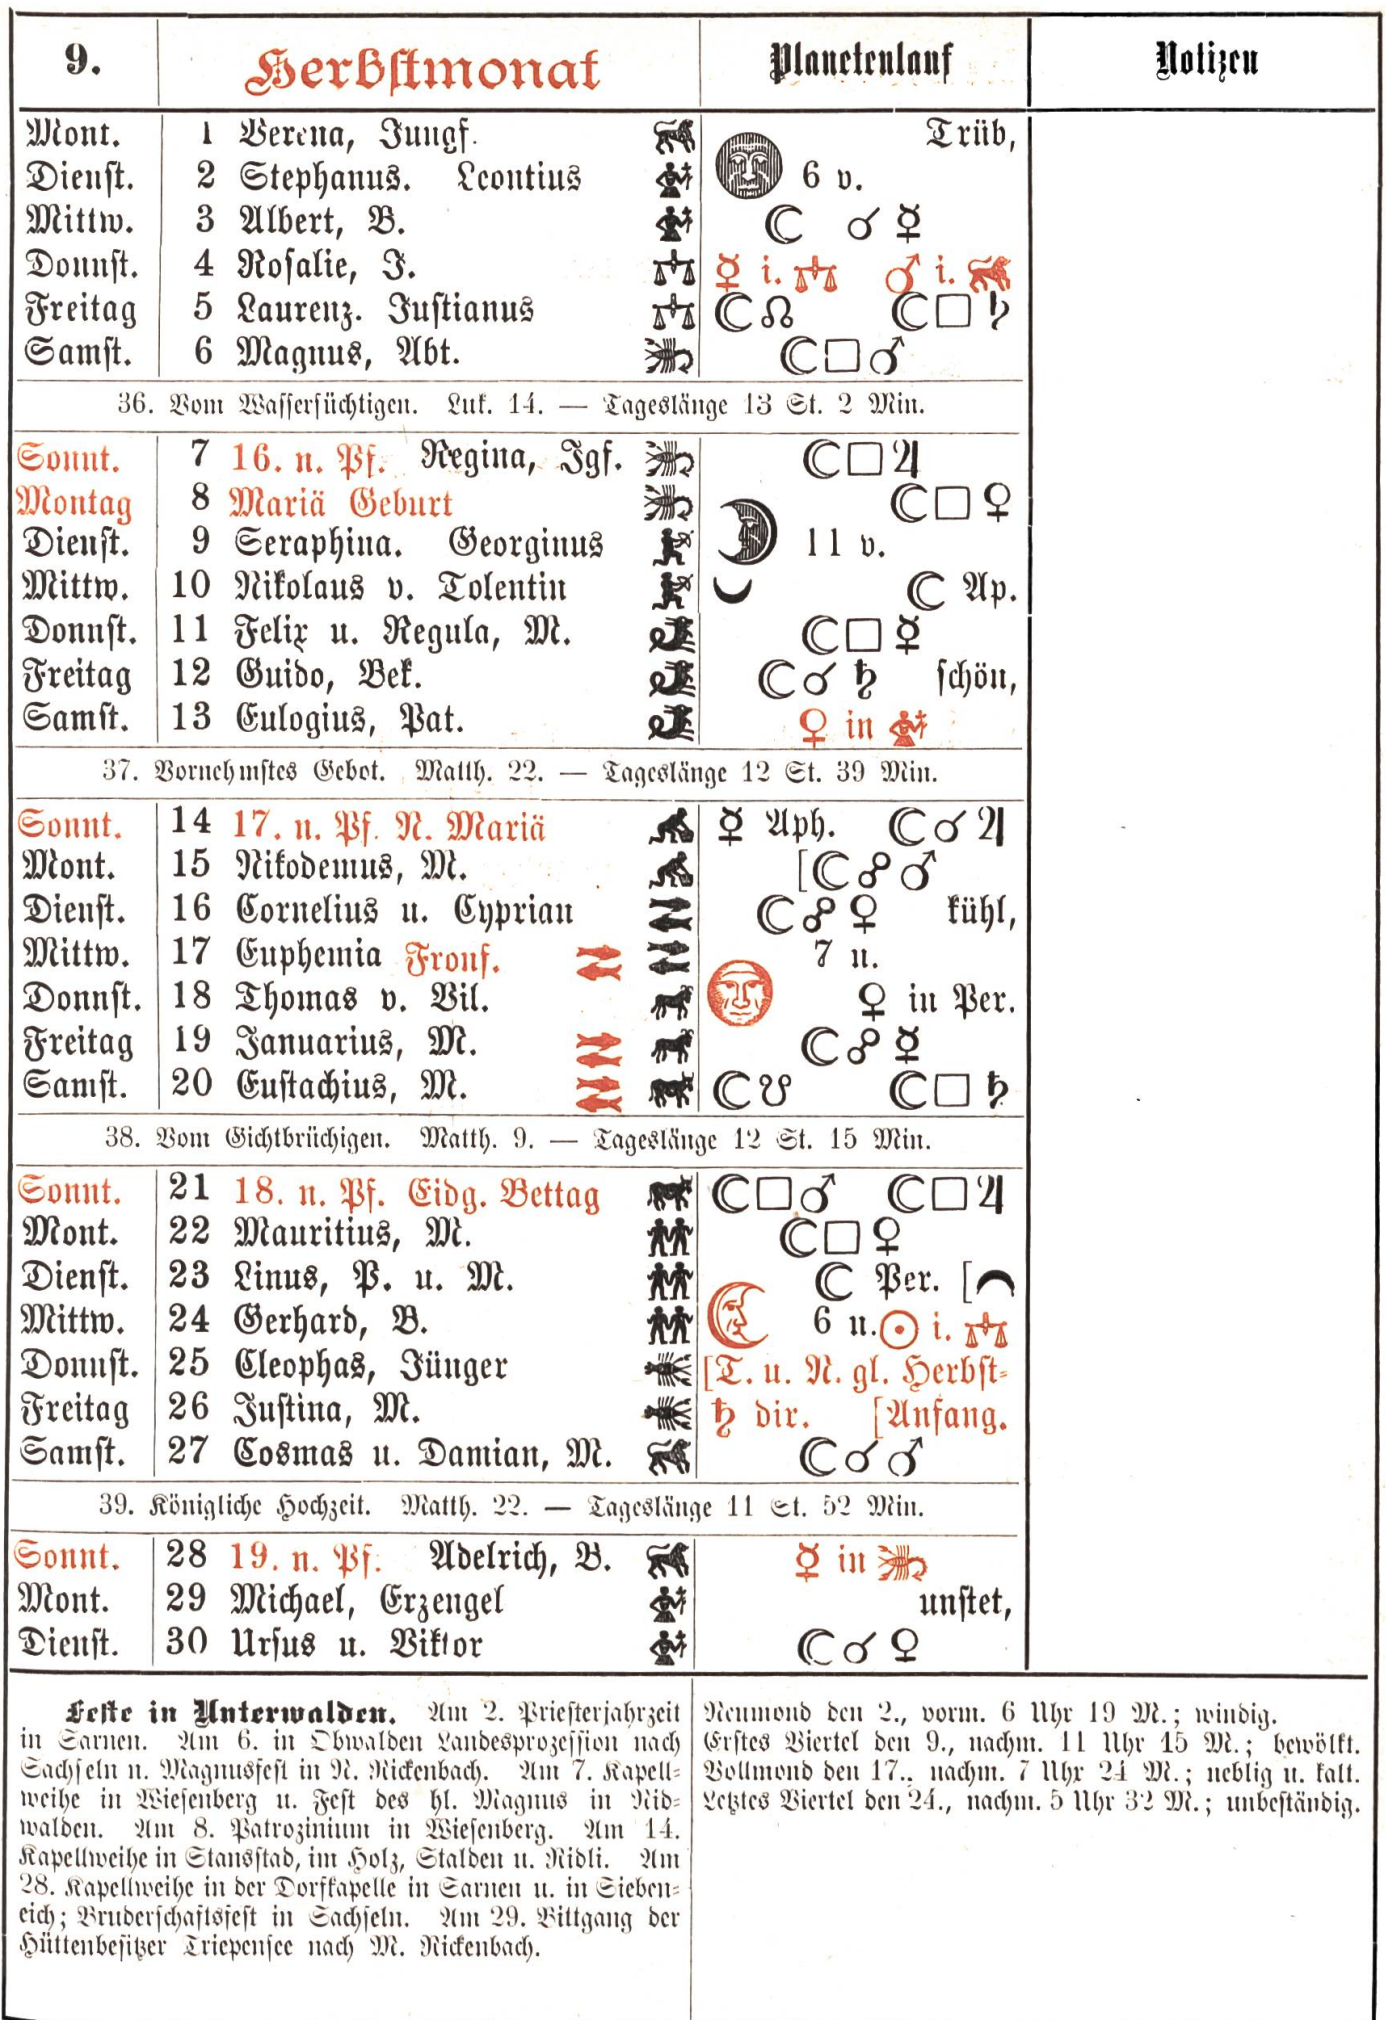 9. Herbstmonat Planetenlauf Notizen
Mont. 1 Verena, Jungf. Trüb,
Dienst. 2 Stephanus. Leontius 6 v.
Mittw. 3 Albert, B. ☾ ☌ ☿
Donnst. 4 Rosalie, J. ☿ i. ♎ ♂ i. ♌
Freitag 5 Laurenz. Justianus ☾ ☊ ☾ □ ♄
Samst. 6 Magnus, Abt. ☾ □ ♂
36. Vom Wassersüchtigen. Luk. 14. — Tageslänge 13 St. 2 Min.
Sonnt. 7 16. n. Pf. Regina, Igf. ☾ □ ♃
Montag 8 Mariä Geburt ☾ □ ♀
Dienst. 9 Seraphina. Georginus 11 v.
Mittw. 10 Nikolaus v. Tolentin ☾ Ap.
Donnst. 11 Felix u. Regula, M. ☾ □ ☿
Freitag 12 Guido, Bek. ☾ ☌ ♄ schön,
Samst. 13 Eulogius, Pat. ♀ in ♍
37. Vornehmstes Gebot. Matth. 22. — Tageslänge 12 St. 39 Min.
Sonnt. 14 17. n. Pf. N. Mariä ☿ Aph. ☾ ☌ ♃
Mont. 15 Nikodemus, M. [☾ ☍ ♂
Dienst. 16 Cornelius u. Cyprian ☾ ☍ ♀ kühl,
Mittw. 17 Euphemia Fronf. 7 n.
Donnst. 18 Thomas v. Vil. ♀ in Per.
Freitag 19 Januarius, M. ☾ ☍ ☿
Samst. 20 Eustachius, M. ☾ ☋ ☾ □ ♄
38. Vom Gichtbrüchigen. Matth. 9. — Tageslänge 12 St. 15 Min.
Sonnt. 21 18. n. Pf. Eidg. Bettag ☾ □ ♂ ☾ □ ♃
Mont. 22 Mauritius, M. ☾ □ ♀
Dienst. 23 Linus, P. u. M. ☾ Per. [
Mittw. 24 Gerhard, B. 6 n. ☉ i. ♎
Donnst. 25 Cleophas, Jünger [T. u. N. gl. Herbst-
Freitag 26 Justina, M. ♄ dir. [Anfang.
Samst. 27 Cosmas u. Damian, M. ☾ ☌ ♂
39. Königliche Hochzeit. Matth. 22. — Tageslänge 11 St. 52 Min.
Sonnt. 28 19. n. Pf. Adelrich, B. ☿ in ♏
Mont. 29 Michael, Erzengel unstet,
Dienst. 30 Ursus u. Viktor ☾ ☌ ♀
Feste in Unterwalden. Am 2. Priesterjahrzeit
in Sarnen. Am 6. in Obwalden Landesprozession nach
Sachseln u. Magnusfest in N. Rickenbach. Am 7. Kapell-
weihe in Wiesenberg u. Fest des hl. Magnus in Nid-
walden. Am 8. Patrozinium in Wiesenberg. Am 14.
Kapellweihe in Stansstad, im Holz, Stalden u. Ridli. Am
28. Kapellweihe in der Dorfkapelle in Sarnen u. in Sieben-
eich; Bruderschaftsfest in Sachseln. Am 29. Bittgang der
Hüttenbesitzer Triepensee nach M. Rickenbach.
Neumond den 2., vorm. 6 Uhr 19 M.; windig.
Erstes Viertel den 9., nachm. 11 Uhr 15 M.; bewölkt.
Vollmond den 17., nachm. 7 Uhr 24 M.; neblig u. kalt.
Letztes Viertel den 24., nachm. 5 Uhr 32 M.; unbeständig.